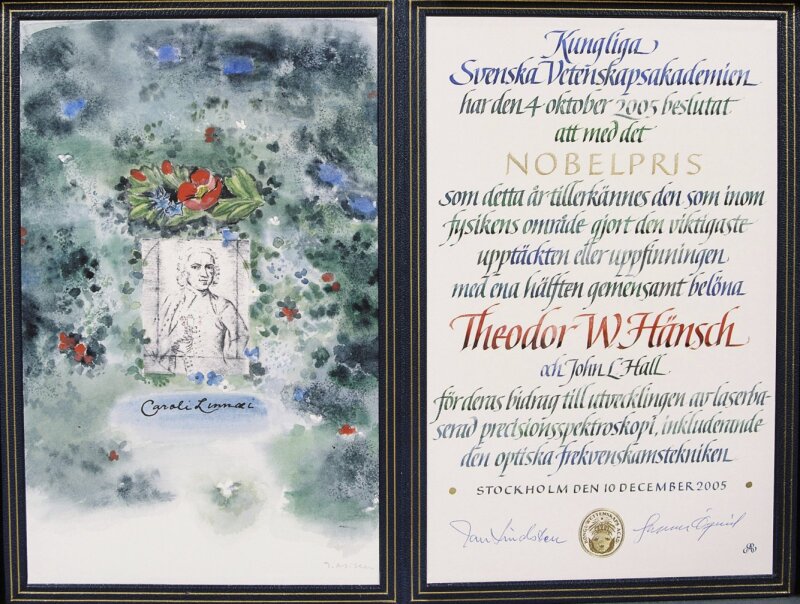 Caroli Linnæi
Kungliga
Svenska Vetenskapsakademien
har den 4 oktober 2005 beslutat
att med det
NOBELPRIS
som detta år tillerkännes den som inom
fysikens område gjort den viktigaste
upptäckten eller uppfinningen
med ena hälften gemensamt belöna
Theodor W. Hänsch
och John L. Hall
för deras bidrag till utvecklingen av laserba-
serad precisionsspektroskopi, inkluderande
den optiska frekvenskamstekniken
STOCKHOLM DEN 10 DECEMBER 2005
Jan Lindsten
Gunnar Öquist